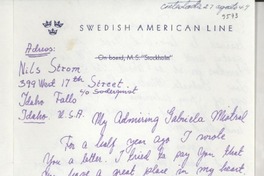 SWEDISH AMERICAN LINE
On board, M.S. "Stockholm"
Adress:
Nils Strom
399 West 17th Street.
c/o Soderquist
Idaho Falls
Idaho U.S.A.
My Admiring Gabriela Mistral
For a half year ago I wrote
You a letter. I tried to pay You that
You have a great place in my heart.